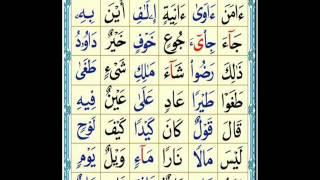 ءَامَنَ ءَاوٰى ءَانِيَةٍ إِلٰفِ أَيْنَ بِهٖ
جَآءَ جِآىْءَ جُوْعٍ خَوْفٍ خَيْرٌ دَاوٗدُ
ذٰلِكَ رَضُوْا شَآءَ مٰلِكِ شَيْءٍ طَغٰى
طَغَوْا طَيْرًا عَادٍ عَلٰى عَيْنٌ فِيْهِ
قَالَ قَوْلٌ كَانَ كَيْدًا كَيْفَ لَوْحٍ
لَيْسَ مَالًا نَارًا مَآءٍ وَيْلٌ يَوْمٍ